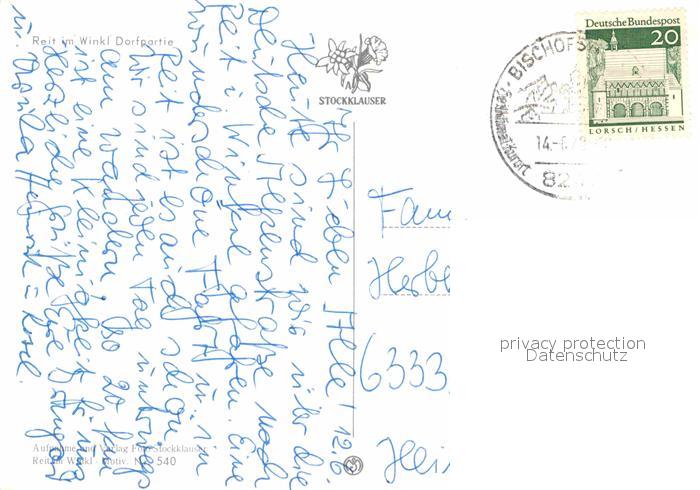 Reit im Winkl Dorfpartie
STOCKKLAUSER
Deutsche Bundespost
20
LORSCH/HESSEN
BISCHOFS
14.-6.
82
Ihr Lieben Alle! 12.6.
Heute sind wir über die
Deutsche Alpenstraße nach
Reit i Winkl gefahren. Eine
wunderschöne Fahrt. in
Reit ist es auch schön. 
Wir sind jeden Tag unterwegs
am wandern so 20 km
ist eine Kleinigkeit für uns
Herzliche Grüße
u.
Fam
Herb
6333
Aufnahme und Verlag Foto-Stockklauser
Reit im Winkl - Motiv. Nr. 540
privacy protection
Datenschutz